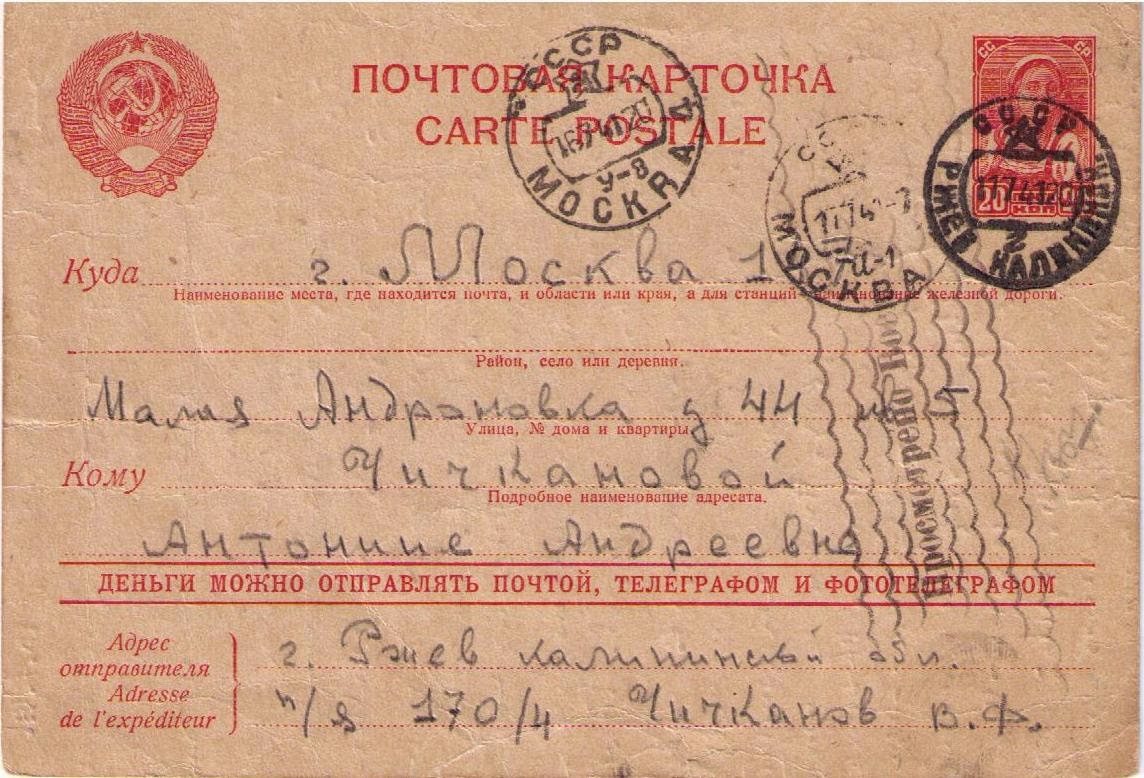 ПОЧТОВАЯ КАРТОЧКА
CARTE POSTALE
СССР
МОСКВА
У-8
СС СР
20
КОП
СССР
РЖЕВ КАЛИНИН
2
МОСКВА
Куда г. Москва 1
Наименование места, где находится почта, и области или края, а для станций наименование железной дороги.
Район, село или деревня.
Малая Андроновка д 44 кв 5
Улица, № дома и квартиры
Кому Чичкановой
Подробное наименование адресата.
Антонине Андреевне
Просмотрено
ДЕНЬГИ МОЖНО ОТПРАВЛЯТЬ ПОЧТОЙ, ТЕЛЕГРАФОМ И ФОТОТЕЛЕГРАФОМ
Адрес
отправителя
Adresse
de l'expéditeur
г. Ржев Калининской обл.
п/я 170/4 Чичканов В.Ф.